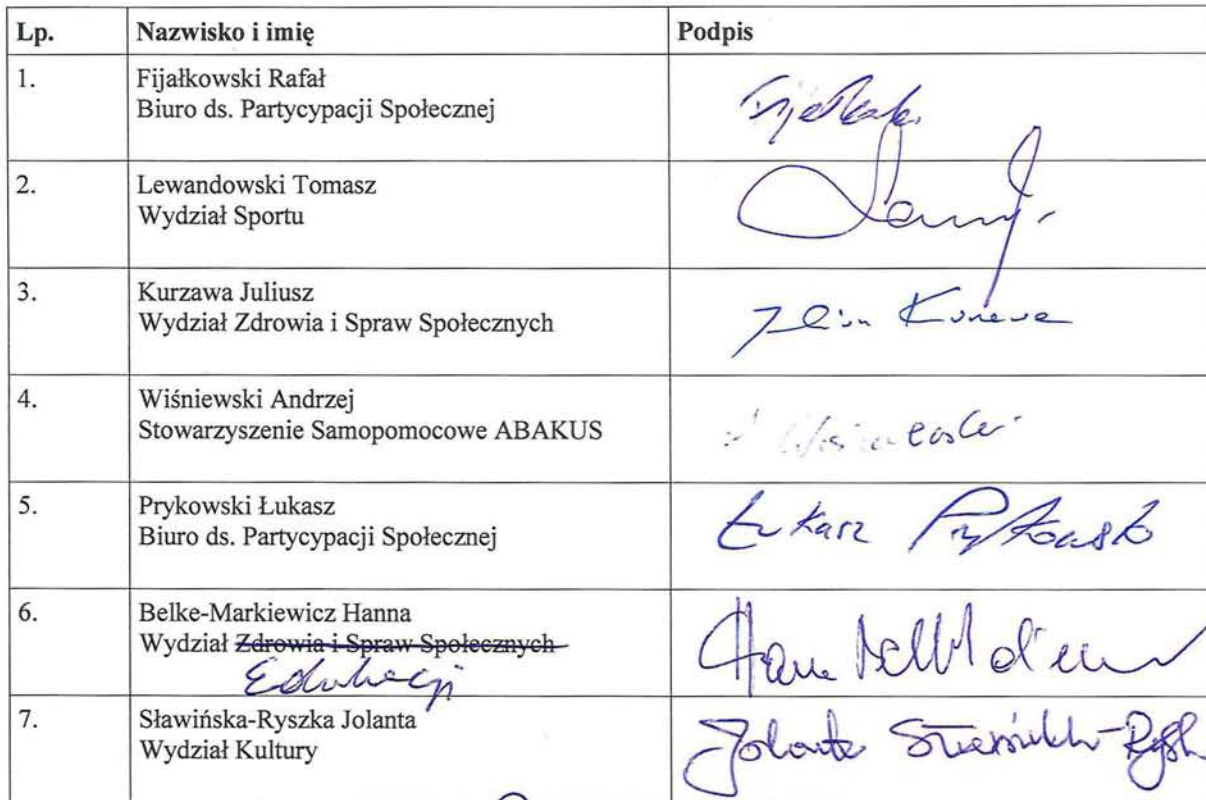 Lp. Nazwisko i imię Podpis
1. Fijałkowski Rafał
Biuro ds. Partycypacji Społecznej
2. Lewandowski Tomasz
Wydział Sportu
3. Kurzawa Juliusz
Wydział Zdrowia i Spraw Społecznych
4. Wiśniewski Andrzej
Stowarzyszenie Samopomocowe ABAKUS
5. Prykowski Łukasz
Biuro ds. Partycypacji Społecznej
Łukasz Prykowski
6. Belke-Markiewicz Hanna
Wydział Zdrowia i Spraw Społecznych
Edukacji
7. Sławińska-Ryszka Jolanta
Wydział Kultury
Jolanta